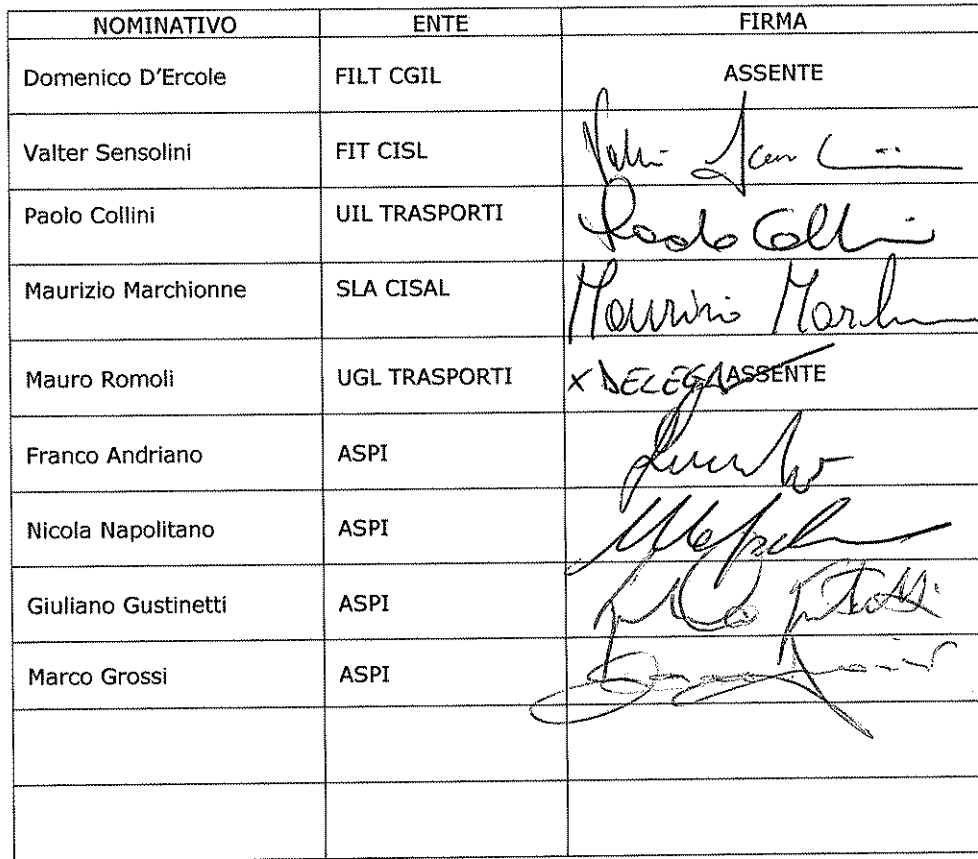 NOMINATIVO ENTE FIRMA
Domenico D'Ercole FILT CGIL ASSENTE
Valter Sensolini FIT CISL
Paolo Collini UIL TRASPORTI Paolo Collini
Maurizio Marchionne SLA CISAL Maurizio
Mauro Romoli UGL TRASPORTI X DELEGA ASSENTE
Franco Andriano ASPI
Nicola Napolitano ASPI
Giuliano Gustinetti ASPI
Marco Grossi ASPI